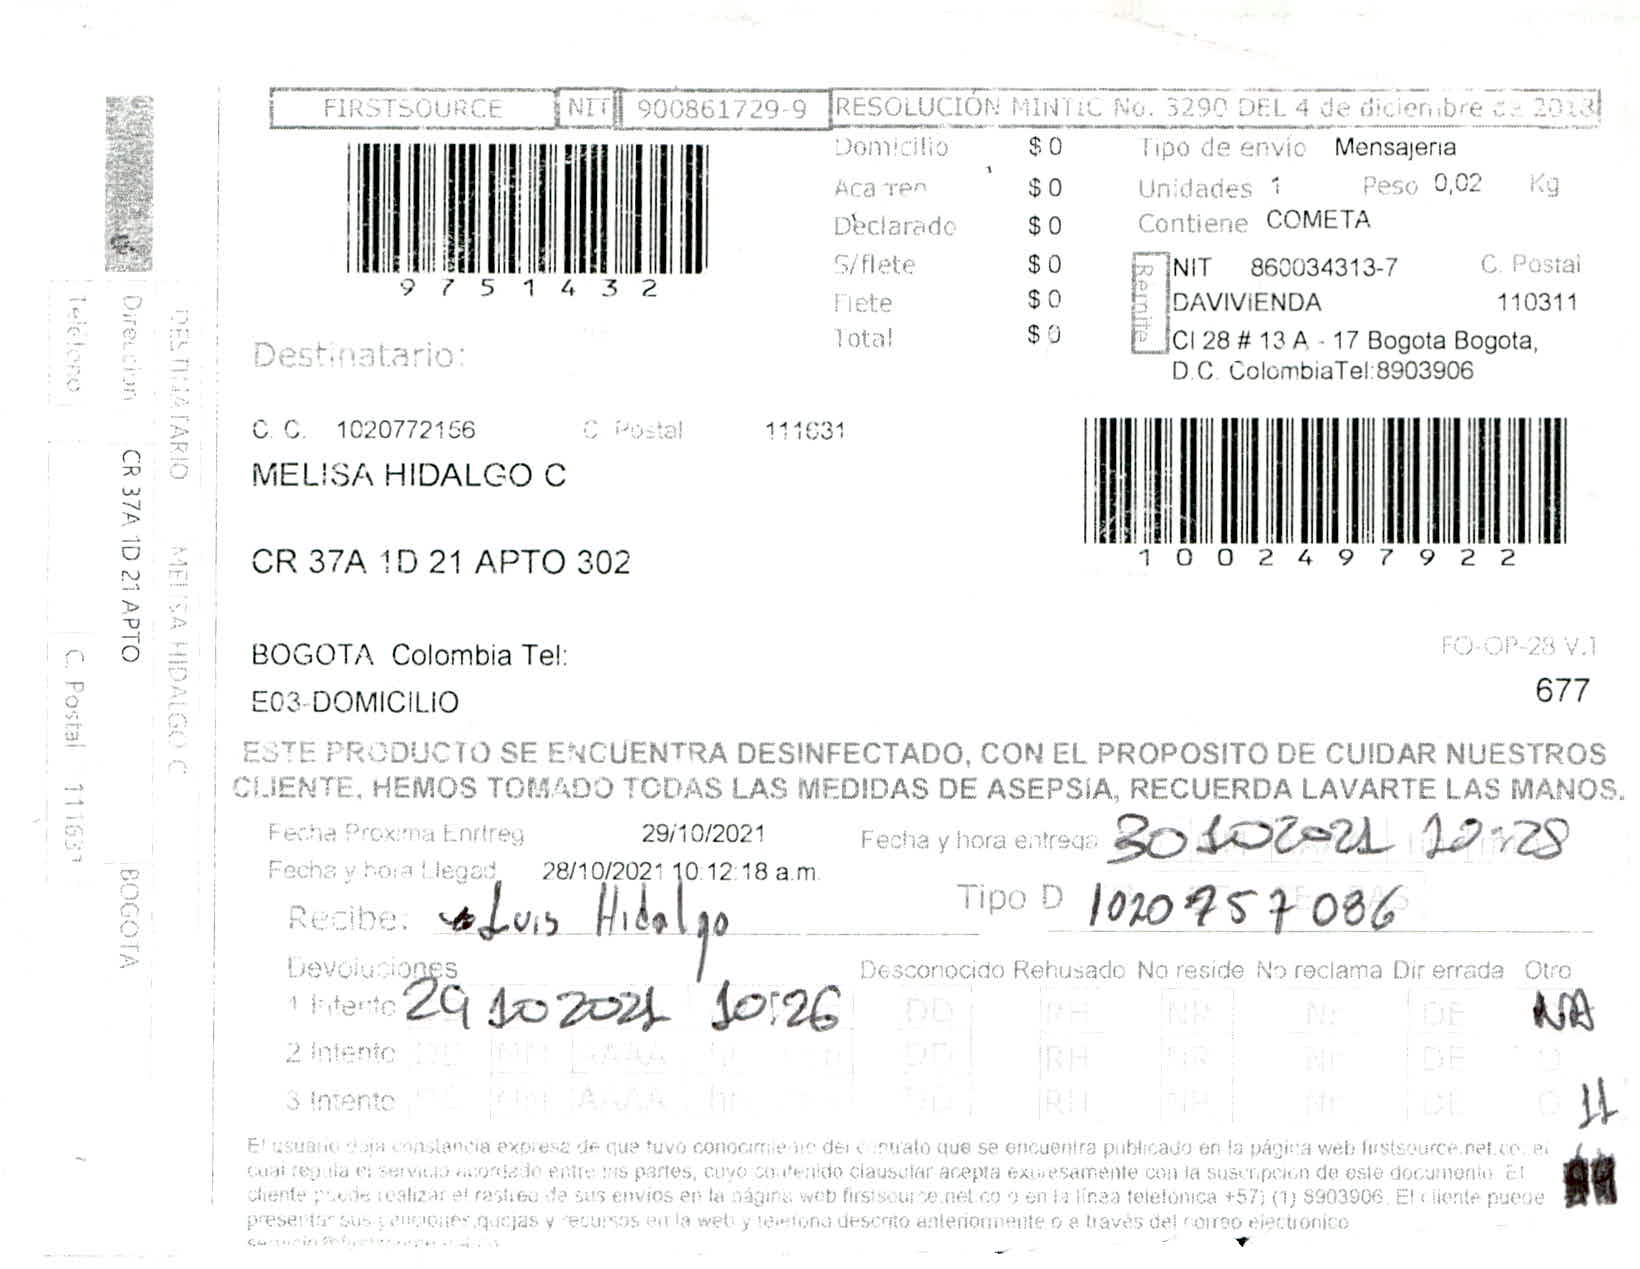 FIRSTSOURCE NIT 900861729-9 RESOLUCIÓN MINTIC No. 3290 DEL 4 de diciembre de 2018
9751432
Domicilio $ 0
Acarreo $ 0
Declarado $ 0
S/flete $ 0
Flete $ 0
Total $ 0
Tipo de envio Mensajeria
Unidades 1 Peso 0,02 Kg
Contiene COMETA
Remite
NIT 860034313-7 C. Postal
DAVIVIENDA 110311
Cl 28 # 13 A - 17 Bogota Bogota,
D.C. ColombiaTel:8903906
Destinatario:
C. C. 1020772156 C. Postal 111631
MELISA HIDALGO C
CR 37A 1D 21 APTO 302
1002497922
BOGOTA Colombia Tel:
E03-DOMICILIO
FO-OP-28 V.1
677
ESTE PRODUCTO SE ENCUENTRA DESINFECTADO, CON EL PROPOSITO DE CUIDAR NUESTROS
CLIENTE, HEMOS TOMADO TODAS LAS MEDIDAS DE ASEPSIA, RECUERDA LAVARTE LAS MANOS.
Fecha Proxima Enrtreg 29/10/2021 Fecha y hora entrega 30 10 2021 12:28
Fecha y hora Llegad 28/10/2021 10:12:18 a.m.
Tipo D 1020757086
Recibe: Luis Hidalgo
Devoluciones Desconocido Rehusado No reside No reclama Dir errada Otro
1 Intento 29 10 2021 10:26 DD RH NR Nr DE NA
2 Intento DD MM AAAA DD RH NR Nr DE O
3 Intento DD MM AAAA DD RH NR Nr DE O
11
El usuario deja constancia expresa de que tuvo conocimiento del contrato que se encuentra publicado en la página web firstsource.net.co, el
cual regula el servicio acordado entre las partes, cuyo contenido clausular acepta expresamente con la suscripcion de este documento. El
cliente puede realizar el rastreo de sus envios en la página web firstsource.net.co o en la línea telefónica +57) (1) 8903906. El cliente puede
presentar sus peticiones,quejas y recursos en la web y telefono descrito anteriormente o a través del correo electronico
DESTINATARIO MELISA HIDALGO C
Direccion CR 37A 1D 21 APTO BOGOTA
Telefono C. Postal 111631